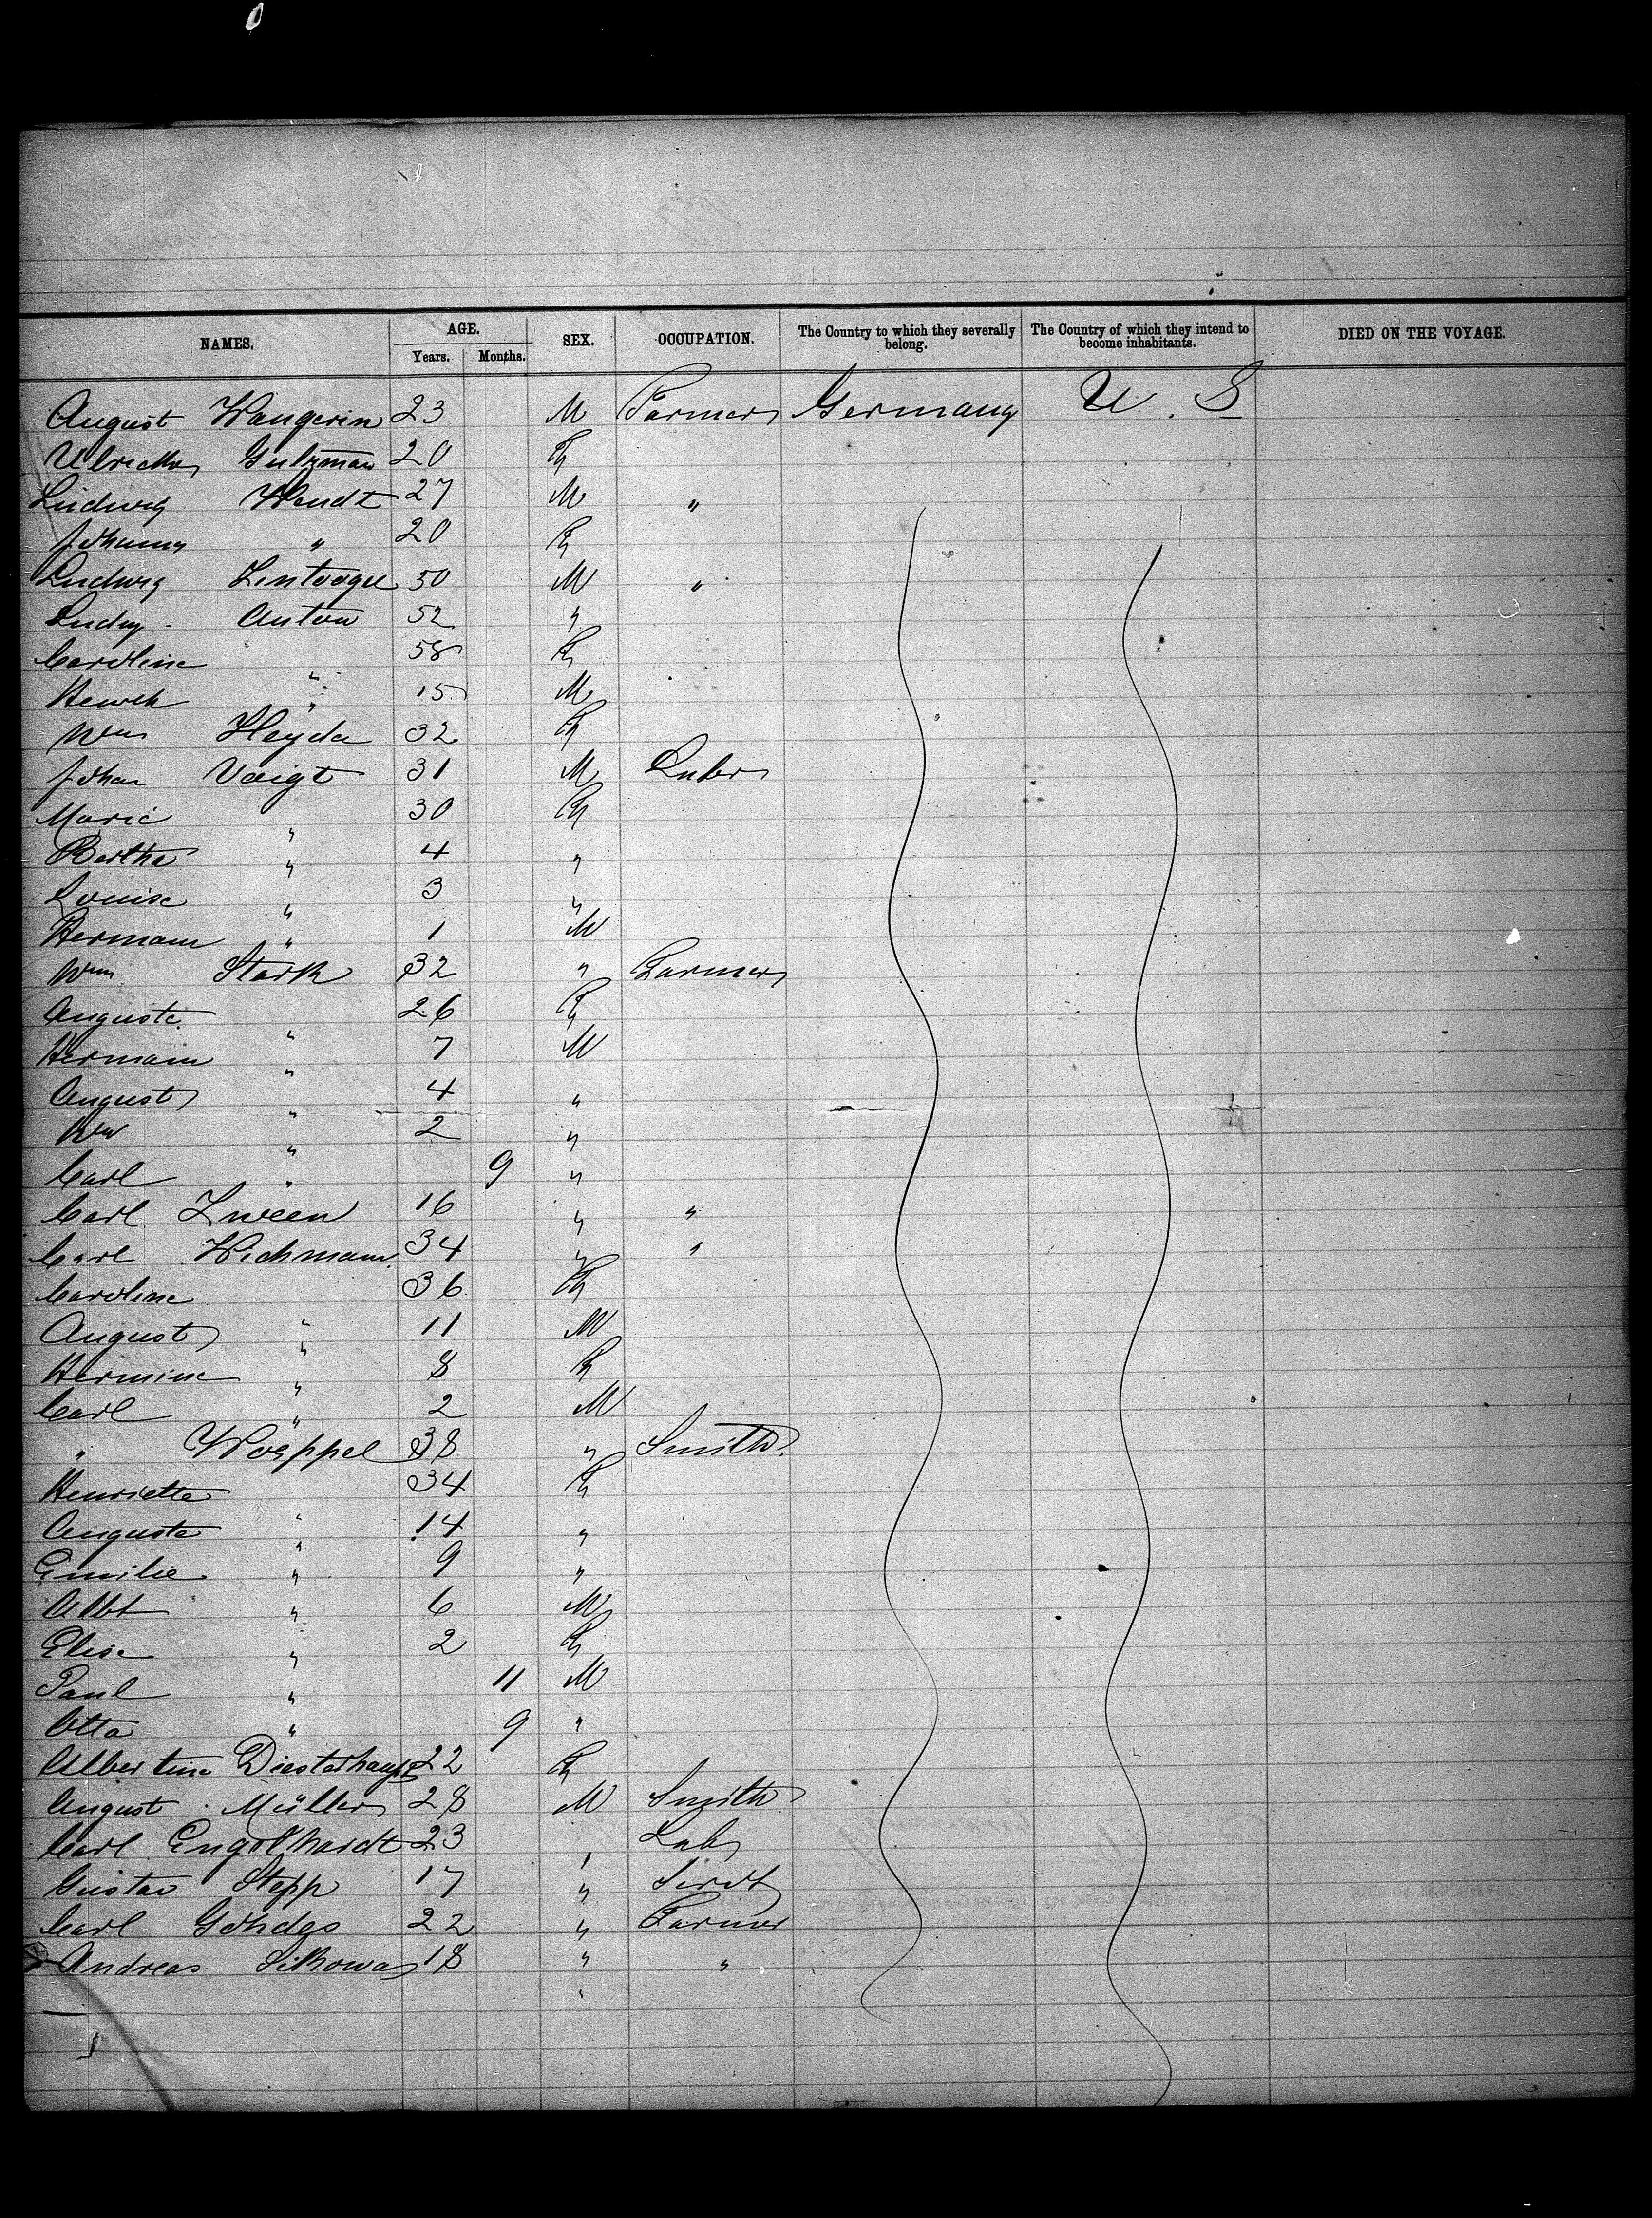 NAMES. AGE. SEX. OCCUPATION. The Country to which they severally belong. The Country of which they intend to become inhabitants. DIED ON THE VOYAGE.
Years. Months.
August Wangerin 23 M Farmer Germany U. S
Ulricke Gulzman 20 F
Ludwig Wendt 27 M "
Johanna " 20 F
Ludwig 50 M "
Ludwg Anton 52 "
Caroline " 58 F
Henrch " 15 M
Wm Heyda 32 F
Johan Voigt 31 M Labr
Marie " 30 F
Bertha " 4 "
Louise " 3 "
Hermann " 1 M
Wm Stark 32 " Farmer
Auguste " 26 F
Hermann " 7 M
August " 4 "
Wm " 2 "
Carl " 9 "
Carl Zween 16 " "
Carl Wichmann 34 " "
Caroline " 36 F
August " 11 M
Hermine " 8 F
Carl " 2 M
" Woeppel 38 " Smith
Henriette " 34 F
Auguste " 14 "
Emilie " 9 "
Albt " 6 M
Elise " 2 F
Paul " 11 M
Otto " 9 "
Albertine Diesterhaupt 22 F
August Müller 28 M Smith
Carl Engelhardt 23 " Lab
Gustav Stepp 17 " Servt
Carl Gohdes 22 " Farmer
Andreas Sikowa 18 " "